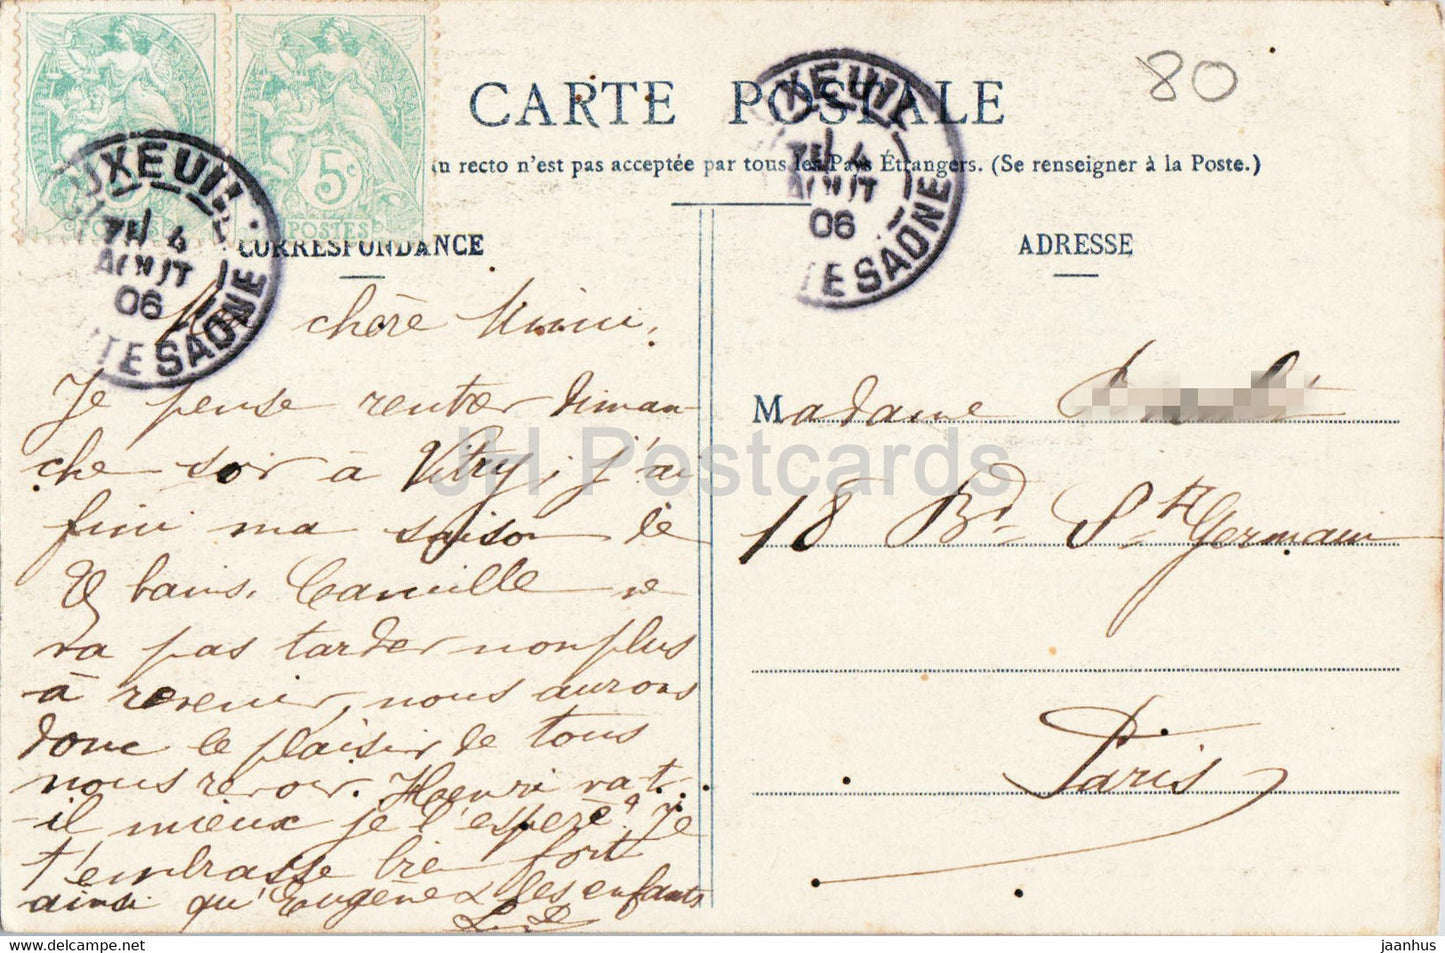 CARTE POSTALE
80
n recto n'est pas acceptée par tous les Pays Étrangers. (Se renseigner à la Poste.)
5c
POSTES
UXEUIL
4
AOUT
06
TE SAÔNE
UXEUIL
4
AOUT
06
TE SAÔNE
CORRESPONDANCE
chère Mimi,
Je pense rentrer diman-
che soir à Vitry, j'ai
fini ma saison de
bains. Camille ne
va pas tarder non plus
à revenir, nous aurons
donc le plaisir de tous
nous revoir. Henri va-t-
-il mieux je l'espère? Je
t'embrasse bien fort
ainsi qu'Eugène & les enfants
ADRESSE
Madame
18 Bd St Germain
Paris
JH Postcards
jaanhus